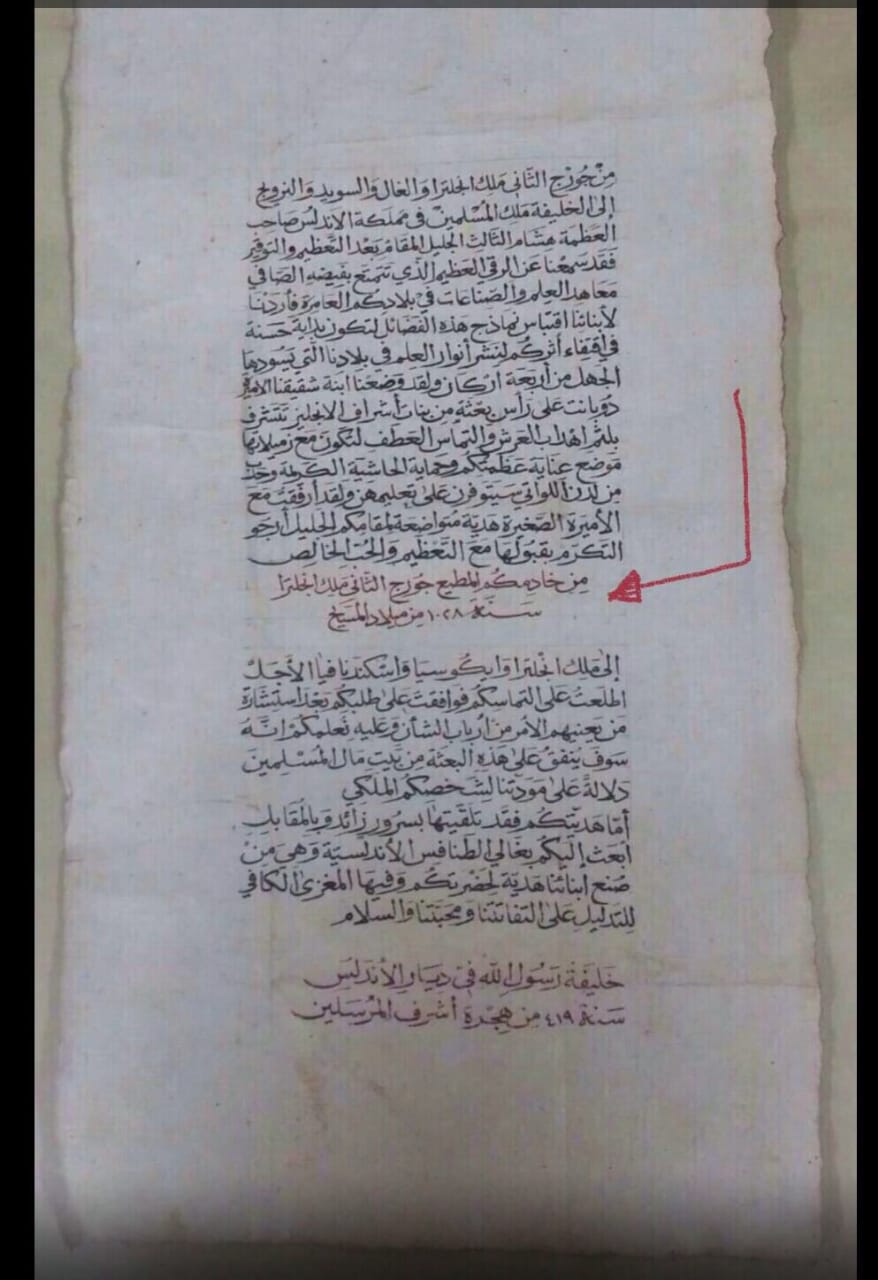 مِنْ جُورْج الثّانى مَلك انجلترا وَالغال وَالسويد وَالنرويج
إلى الخليفة مَلك المُسْلمينْ فى مَملكة الاندلس صَاحب
العَظمة هشام الثالث الجليل المقام بَعْد التَّعظيم والتوقير
فَقد سَمعْنا عَن الرقي العَظيم الذَّي تتَمتع بفَيضه الصَافي
مَعاهد العلم والصّناعات في بلادكم العامرة فأردْنا
لأبنائنا اقتباس نماذج هَذه الفَضائل لتكون بداية حَسَنة
في اقتفاء أثركم لنشر أنوار العِلم في بلادنا الّتي يَسُودهَا
الجَهل من أربَعة أركان ولقد وَضعْنا ابنة شقيقنا الاميرة
دُوبانت على رَأس بعْثة مِن بنات أشراف الانجليز تتَشرف
بلثم اهْداب العَرش والتماس العَطف لتكون مَع زميلاتها
مَوضع عناية عَظمتكم وحِماية الحاشية الكريمة وحَدب
مِن لدن اللواتى سَيتوفرن على تعليمهن ولقد أرفقتُ مَع
الأميرة الصَّغيرة هَدية مُتواضعَة لمقامكم الجليل أرجو
التكرّم بقبُولها مَعَ التعْظيم وَالحُب الخالص
مِن خادمكُم المطيع جورج الثّانى مَلك انجلترا
سَنة ١٠٢٨ مِن ميلاد المسيح
إلى مَلك انْجلترا وَايكوسيا وَاسْكندنافيا الأجَل
اطلَعتُ عَلى التماسكُم فوافقت عَلى طلبكم بَعْد استشارة
مَن يَعنيهم الأمر من أرباب الشأن وعَليه نُعلمكمْ انَّهُ
سَوفَ يُنفقُ عَلى هَذِهِ البعثة مِن بَيت مَال المُسْلمينَ
دَلالةً عَلى مَودّتنا لشَخصكمُ الملكي
أمّا هَديّتكم فقَد تلقّيتها بسرور زائد وَبالمُقابل
أبعَث إليكم بغالي الطنافس الأندلسيّة وَهيَ مِنْ
صُنع ابنائنا هَديّة لحَضرتكُم وَفيهَا المغزى الكافي
للتدليل عَلى التفاتتنا ومَحبّتنا والسلام
خَليفَة رَسُول الله في ديَار الأندَلس
سَنة ٤١٩ مِن هِجْرَة أشرف المُرسَلين